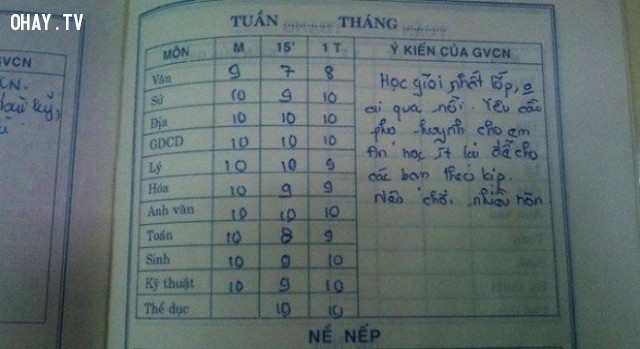 OHAY.TV
TUẦN ........ THÁNG ........
GVCN
MÔN M 15' 1 T Ý KIẾN CỦA GVCN
Văn 9 7 8
Sử 10 9 10
Địa 10 10 10
GDCD 10 10 10
Lý 10 10 9
Hóa 10 9 9
Anh văn 10 10 10
Toán 10 8 9
Sinh 10 9 10
Kỹ thuật 10 9 10
Thể dục 10 10
Học giỏi nhất lớp, o
ai qua nổi. Yêu cầu
phụ huynh cho em
ăn học ít lại để cho
các bạn theo kịp.
Nên chơi nhiều hơn
NỀ NẾP